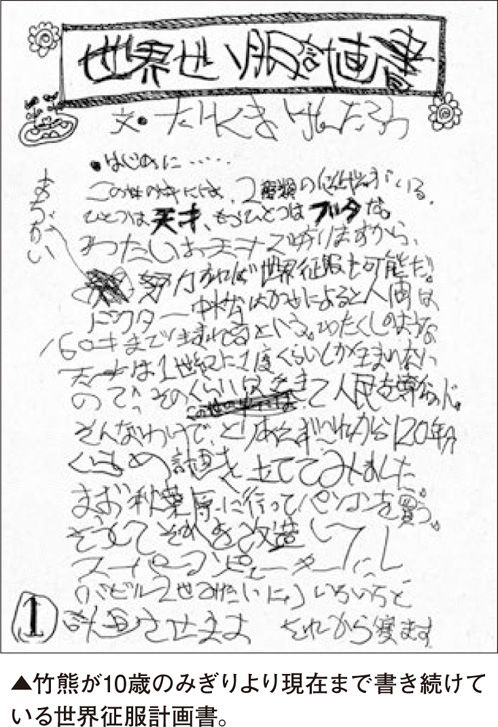 世界せい服計画書
文・たけくまけんたろう
・はじめに……
まちがい
この世の中には、2種類の人間がいる。
ひとつは天才、もうひとつはブタだ。
わたしは天才であります から、
努力すれば世界征服も可能だ。
ドクター中松はかせによると人間は
160才まで生きれるという。わたくしのような
天才は1世紀に1度くらいしか生まれない
ので、そのくらい長生きして人民を導かんと。
そんなわけで、とりあえずこれから120年分
くらいの計画を立ててみました
まず秋葉原に行ってパソコンを買う。
そしてそれを改造して
スーパーコンピューターにし
(バビル2世みたいに)いろいろと
計画させます それから寝ます
1
▲竹熊が10歳のみぎりより現在まで書き続けて
いる世界征服計画書。